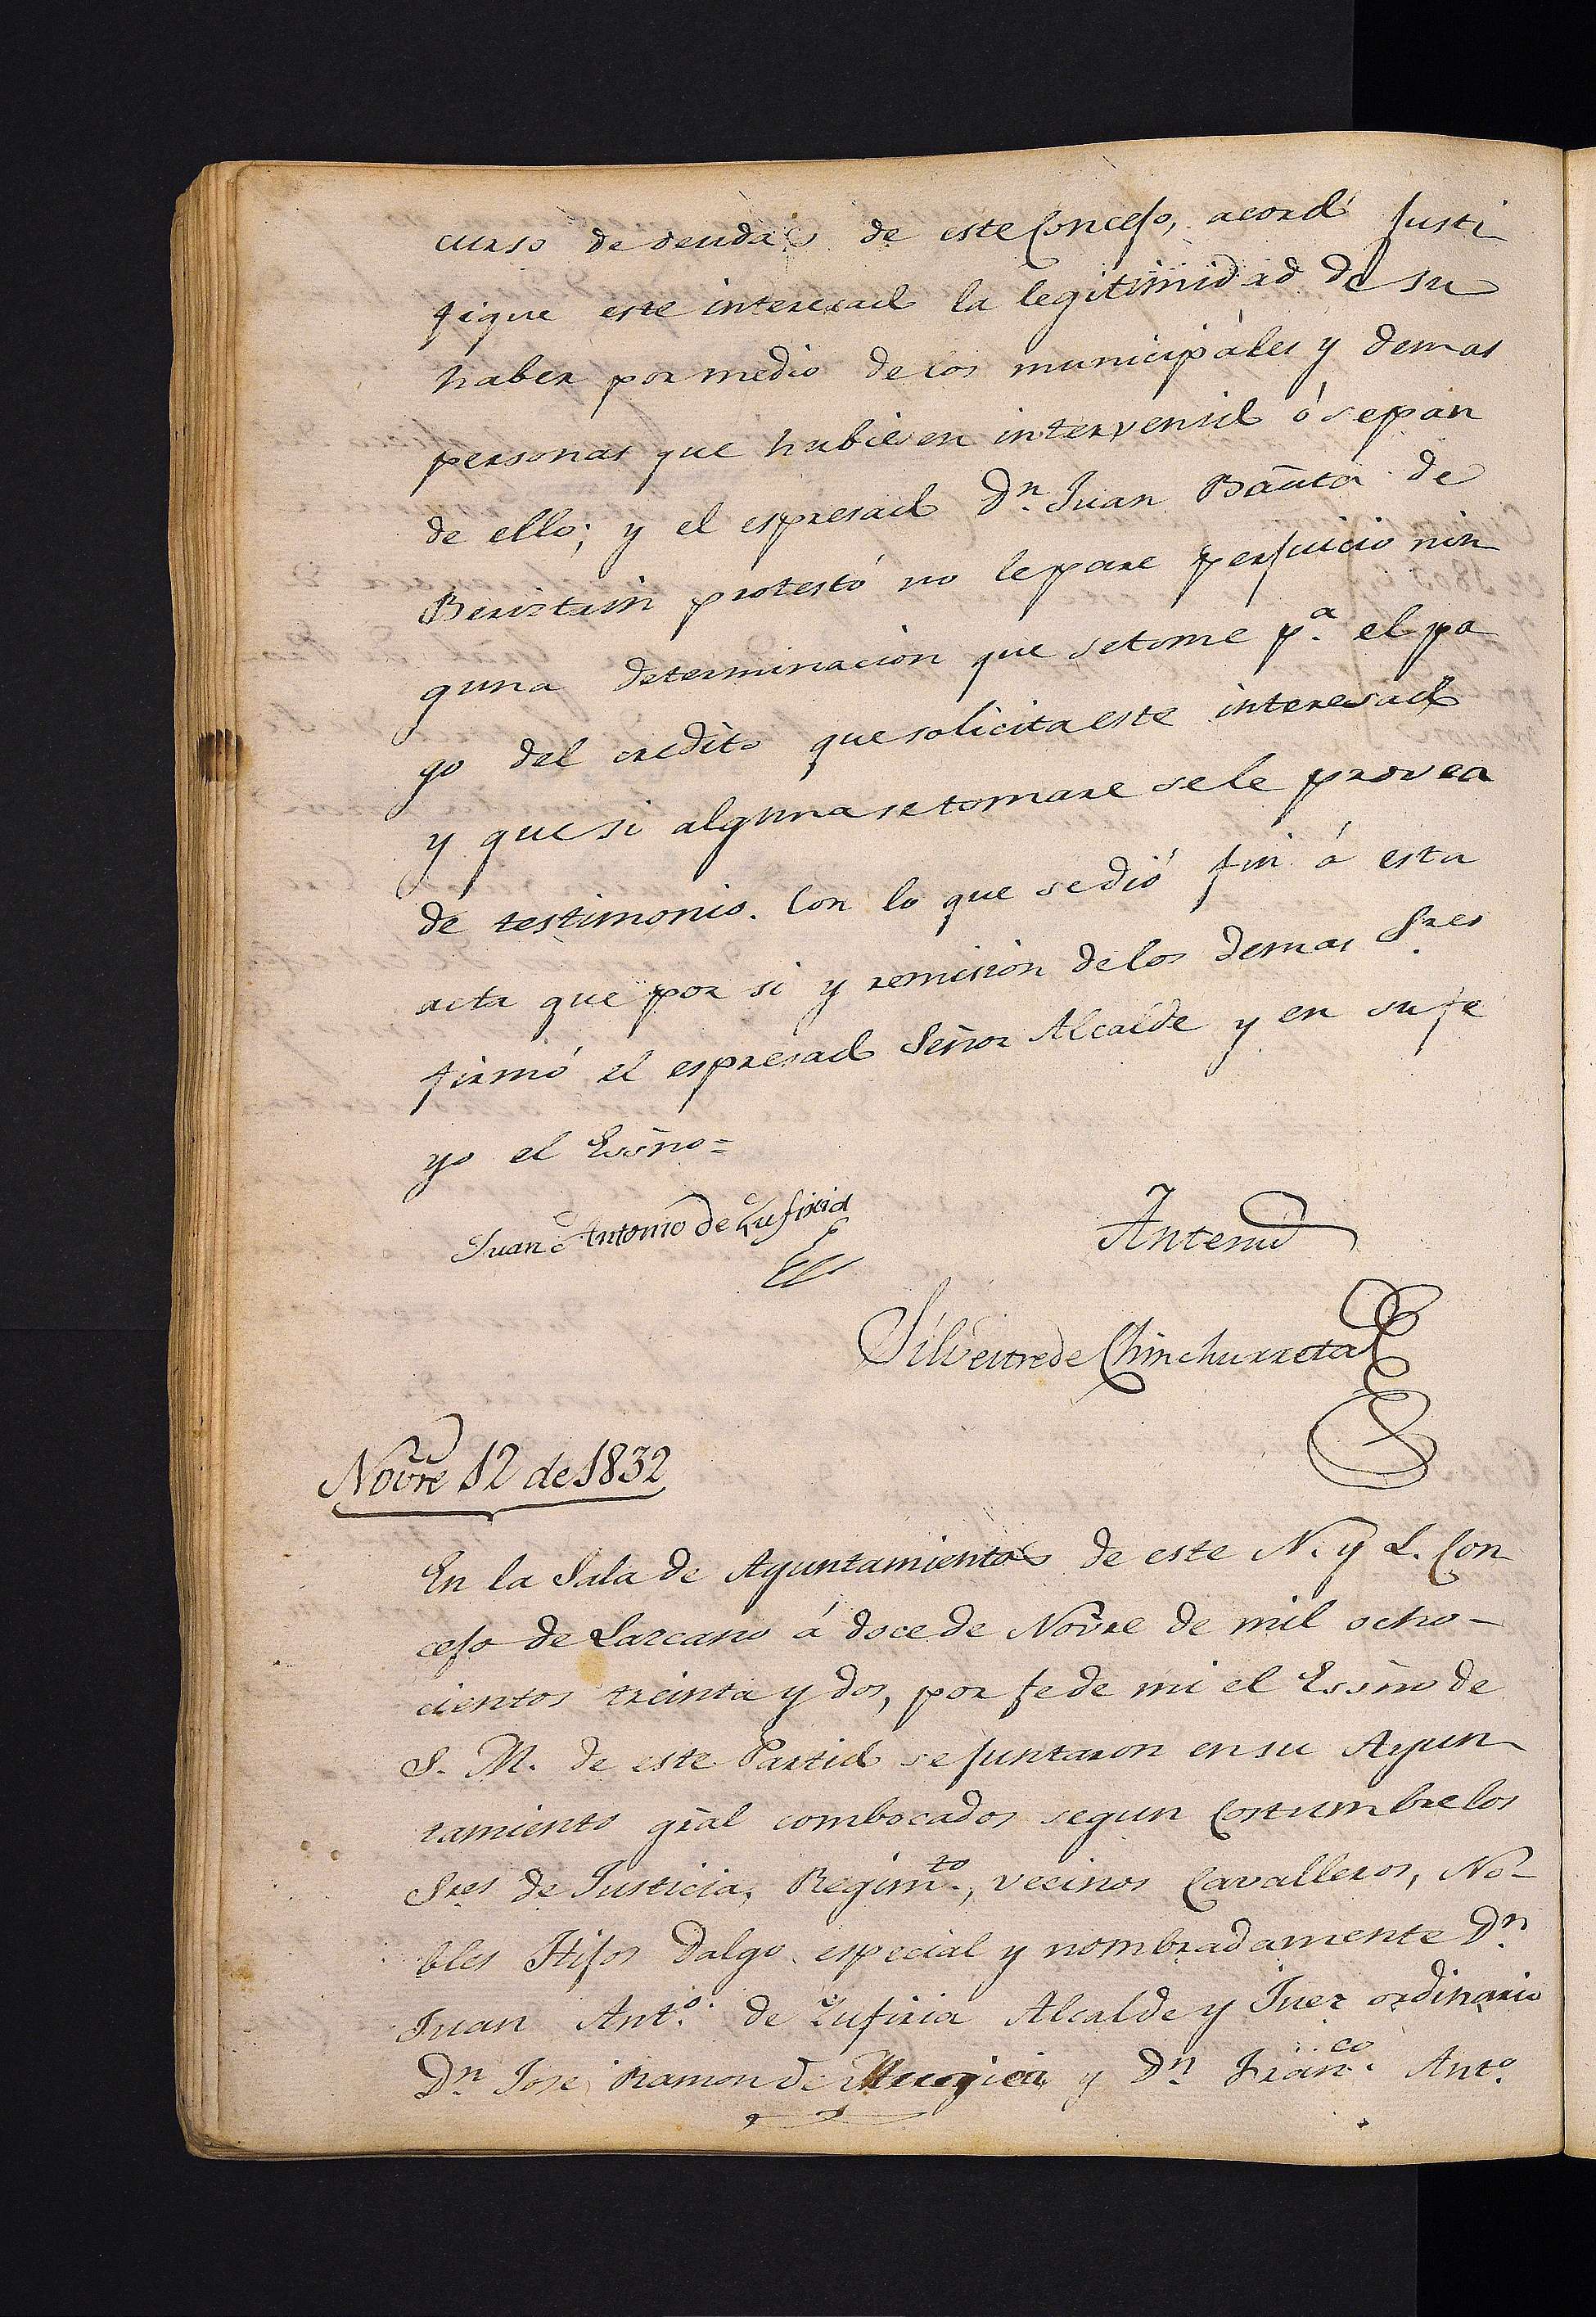 curso de deudas de este Concejo, acordó justi
fique este interesado la legitimidad de su
haber por medio de los municipales y demas
personas que hubiesen intervenido ó sepan
de ello; y el espresado Dn. Juan Bauta de
Beristain protestó no le pare perjuicio nin
guna determinacion que se tome pa. el pa
go del credito que solicita este interesado
y que si alguna se tomare se le provea
de testimonio. Con lo que se dió fin á esta
acta que por si y remision de los demas Sres
firmó el espresado Señor Alcalde y en su fe
yo el Essno=
Juan Antonio de Zufiria
Antemi
Silvestre de Chinchurreta
Novre 12 de 1832
En la Sala de Ayuntamientos de este N. y L. Con
cejo de Lazcano á doce de Novre de mil ocho-
cientos treinta y dos, por fe de mi el Essno de
S. M. de este Partido se juntaron en su Ayun
tamiento gral combocados segun Costumbre los
Sres de Justicia, Regimto., vecinos Cavalleros, No-
bles Hijos dalgo especial y nombradamente Dn.
Juan Anto. de Zufiria Alcalde y Juez ordinario
Dn. José Ramon de Mugica y Dn. Franco. Anto.